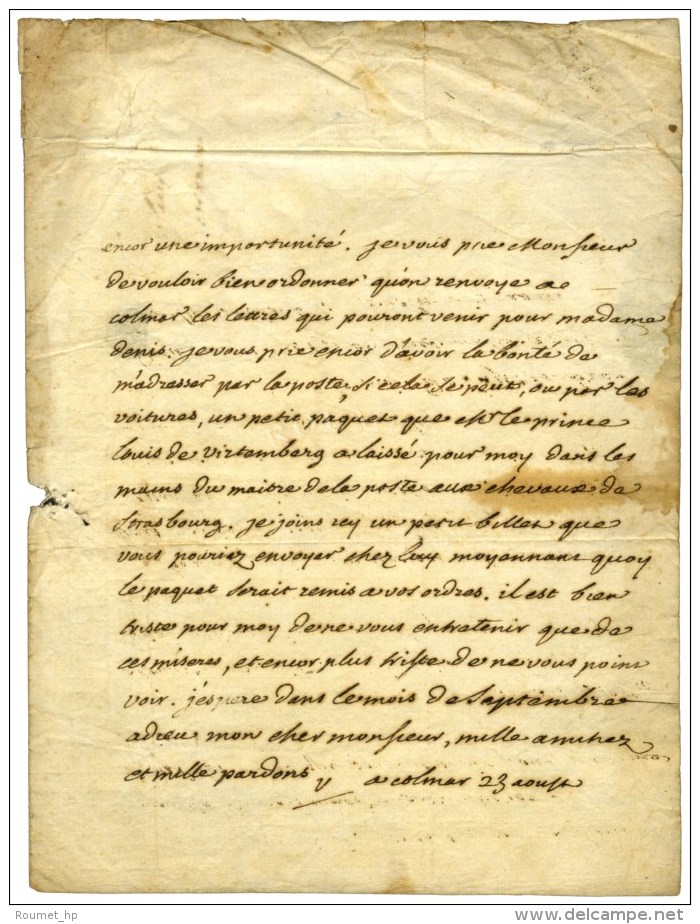 encor une importunité. je vous prie Monsieur
de vouloir bien ordonner qu'on renvoye a
colmar les lettres qui pouront venir pour madame
denis. je vous prie encor d'avoir la bonté de
m'adresser par la poste, si cela se peut, ou par les
voitures, un petit paquet que Mr le prince
louis de virtemberg a laissé pour moy dans les
mains du maitre de la poste aux chevaux de
strasbourg. je joins icy un petit billet que
vous pouriez envoyer chez luy moyennant quoy
le paquet serait remis a vos ordres. il est bien
triste pour moy de ne vous entretenir que de
ces miseres, et encor plus triste de ne vous point
voir. j'espere dans le mois de septembre
adieu mon cher monsieur, mille amitiez
et mille pardons V a colmar 23 aoust
Roumet_hp
www.delcampe.net